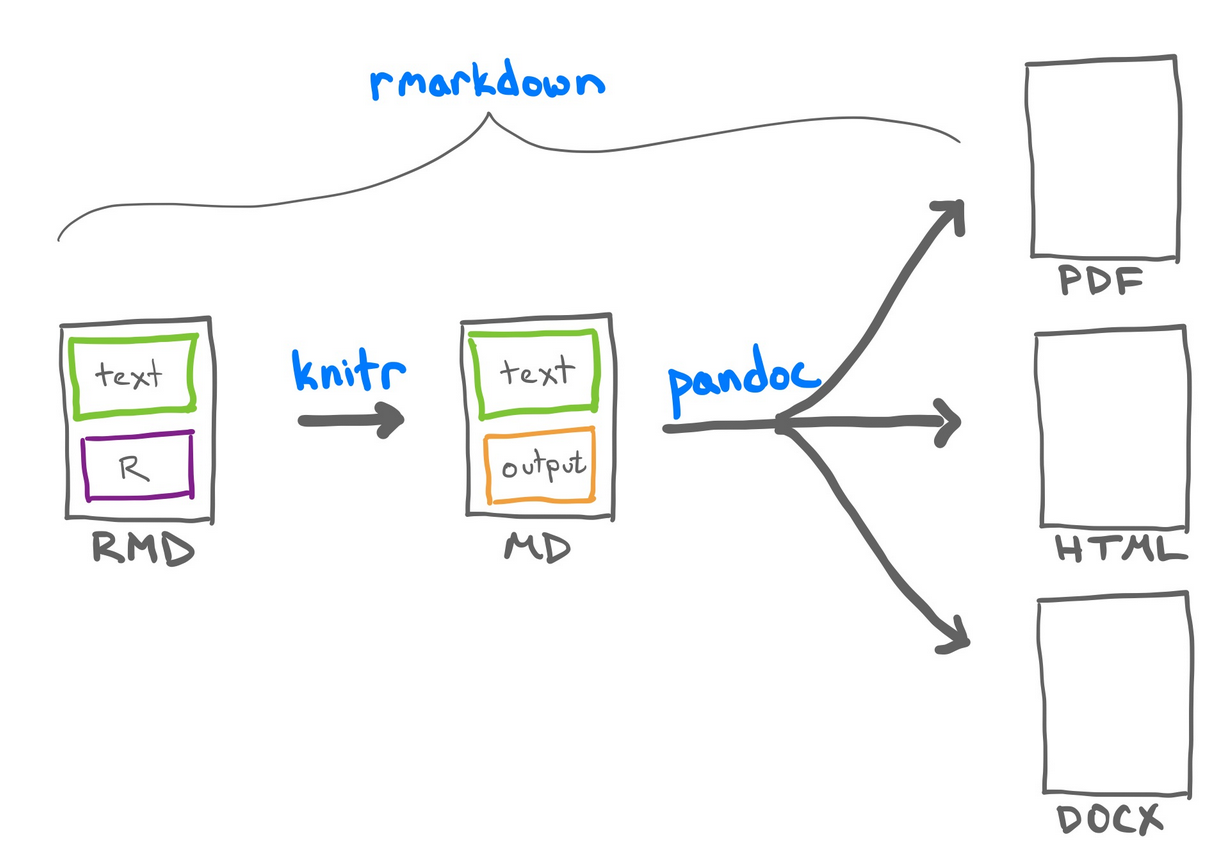 rmarkdown
text
R
RMD
knitr
text
output
MD
pandoc
PDF
HTML
DOCX